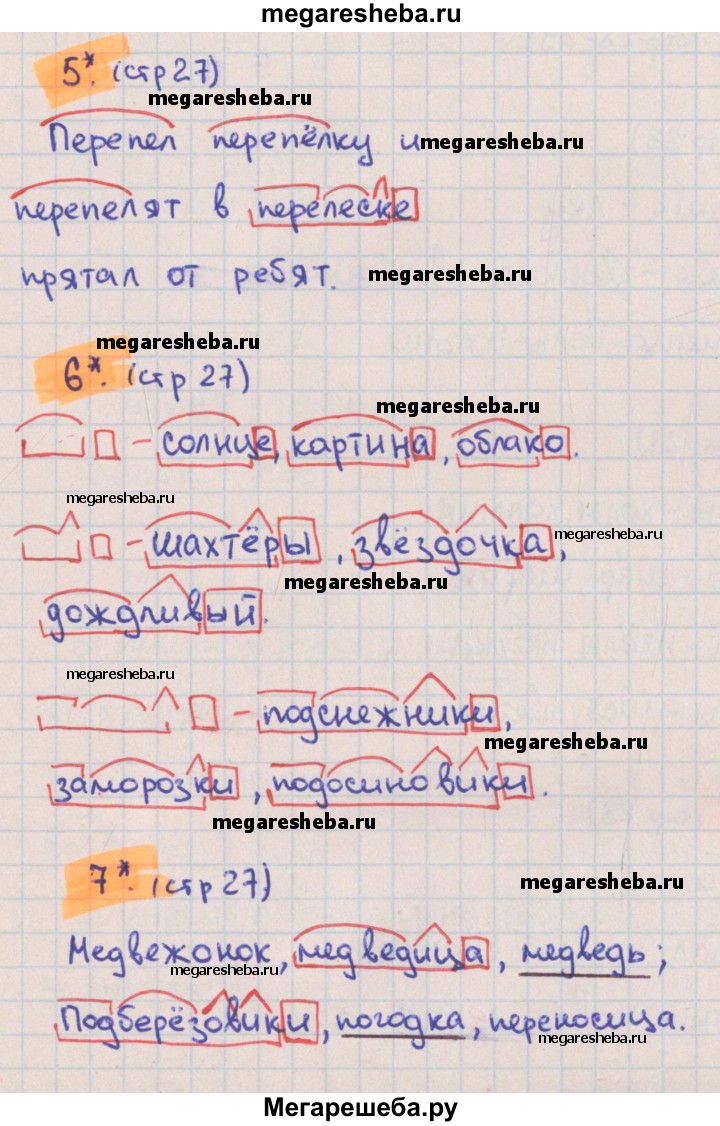 megaresheba.ru
5*. (стр 27)
megaresheba.ru
Перепел перепёлку и megaresheba.ru
перепелят в перелеске
прятал от ребят. megaresheba.ru
megaresheba.ru
6*. (стр 27)
megaresheba.ru
– солнце, картина, облако.
megaresheba.ru
– шахтёры, звёздочка, megaresheba.ru
megaresheba.ru
дождливый.
megaresheba.ru
– подснежники,
megaresheba.ru
заморозки, подосиновики.
megaresheba.ru
7*. (стр 27) megaresheba.ru
Медвежонок, медведица, медведь;
megaresheba.ru
Подберёзовики, погодка, переносица.
megaresheba.ru
Мегарешеба.ру